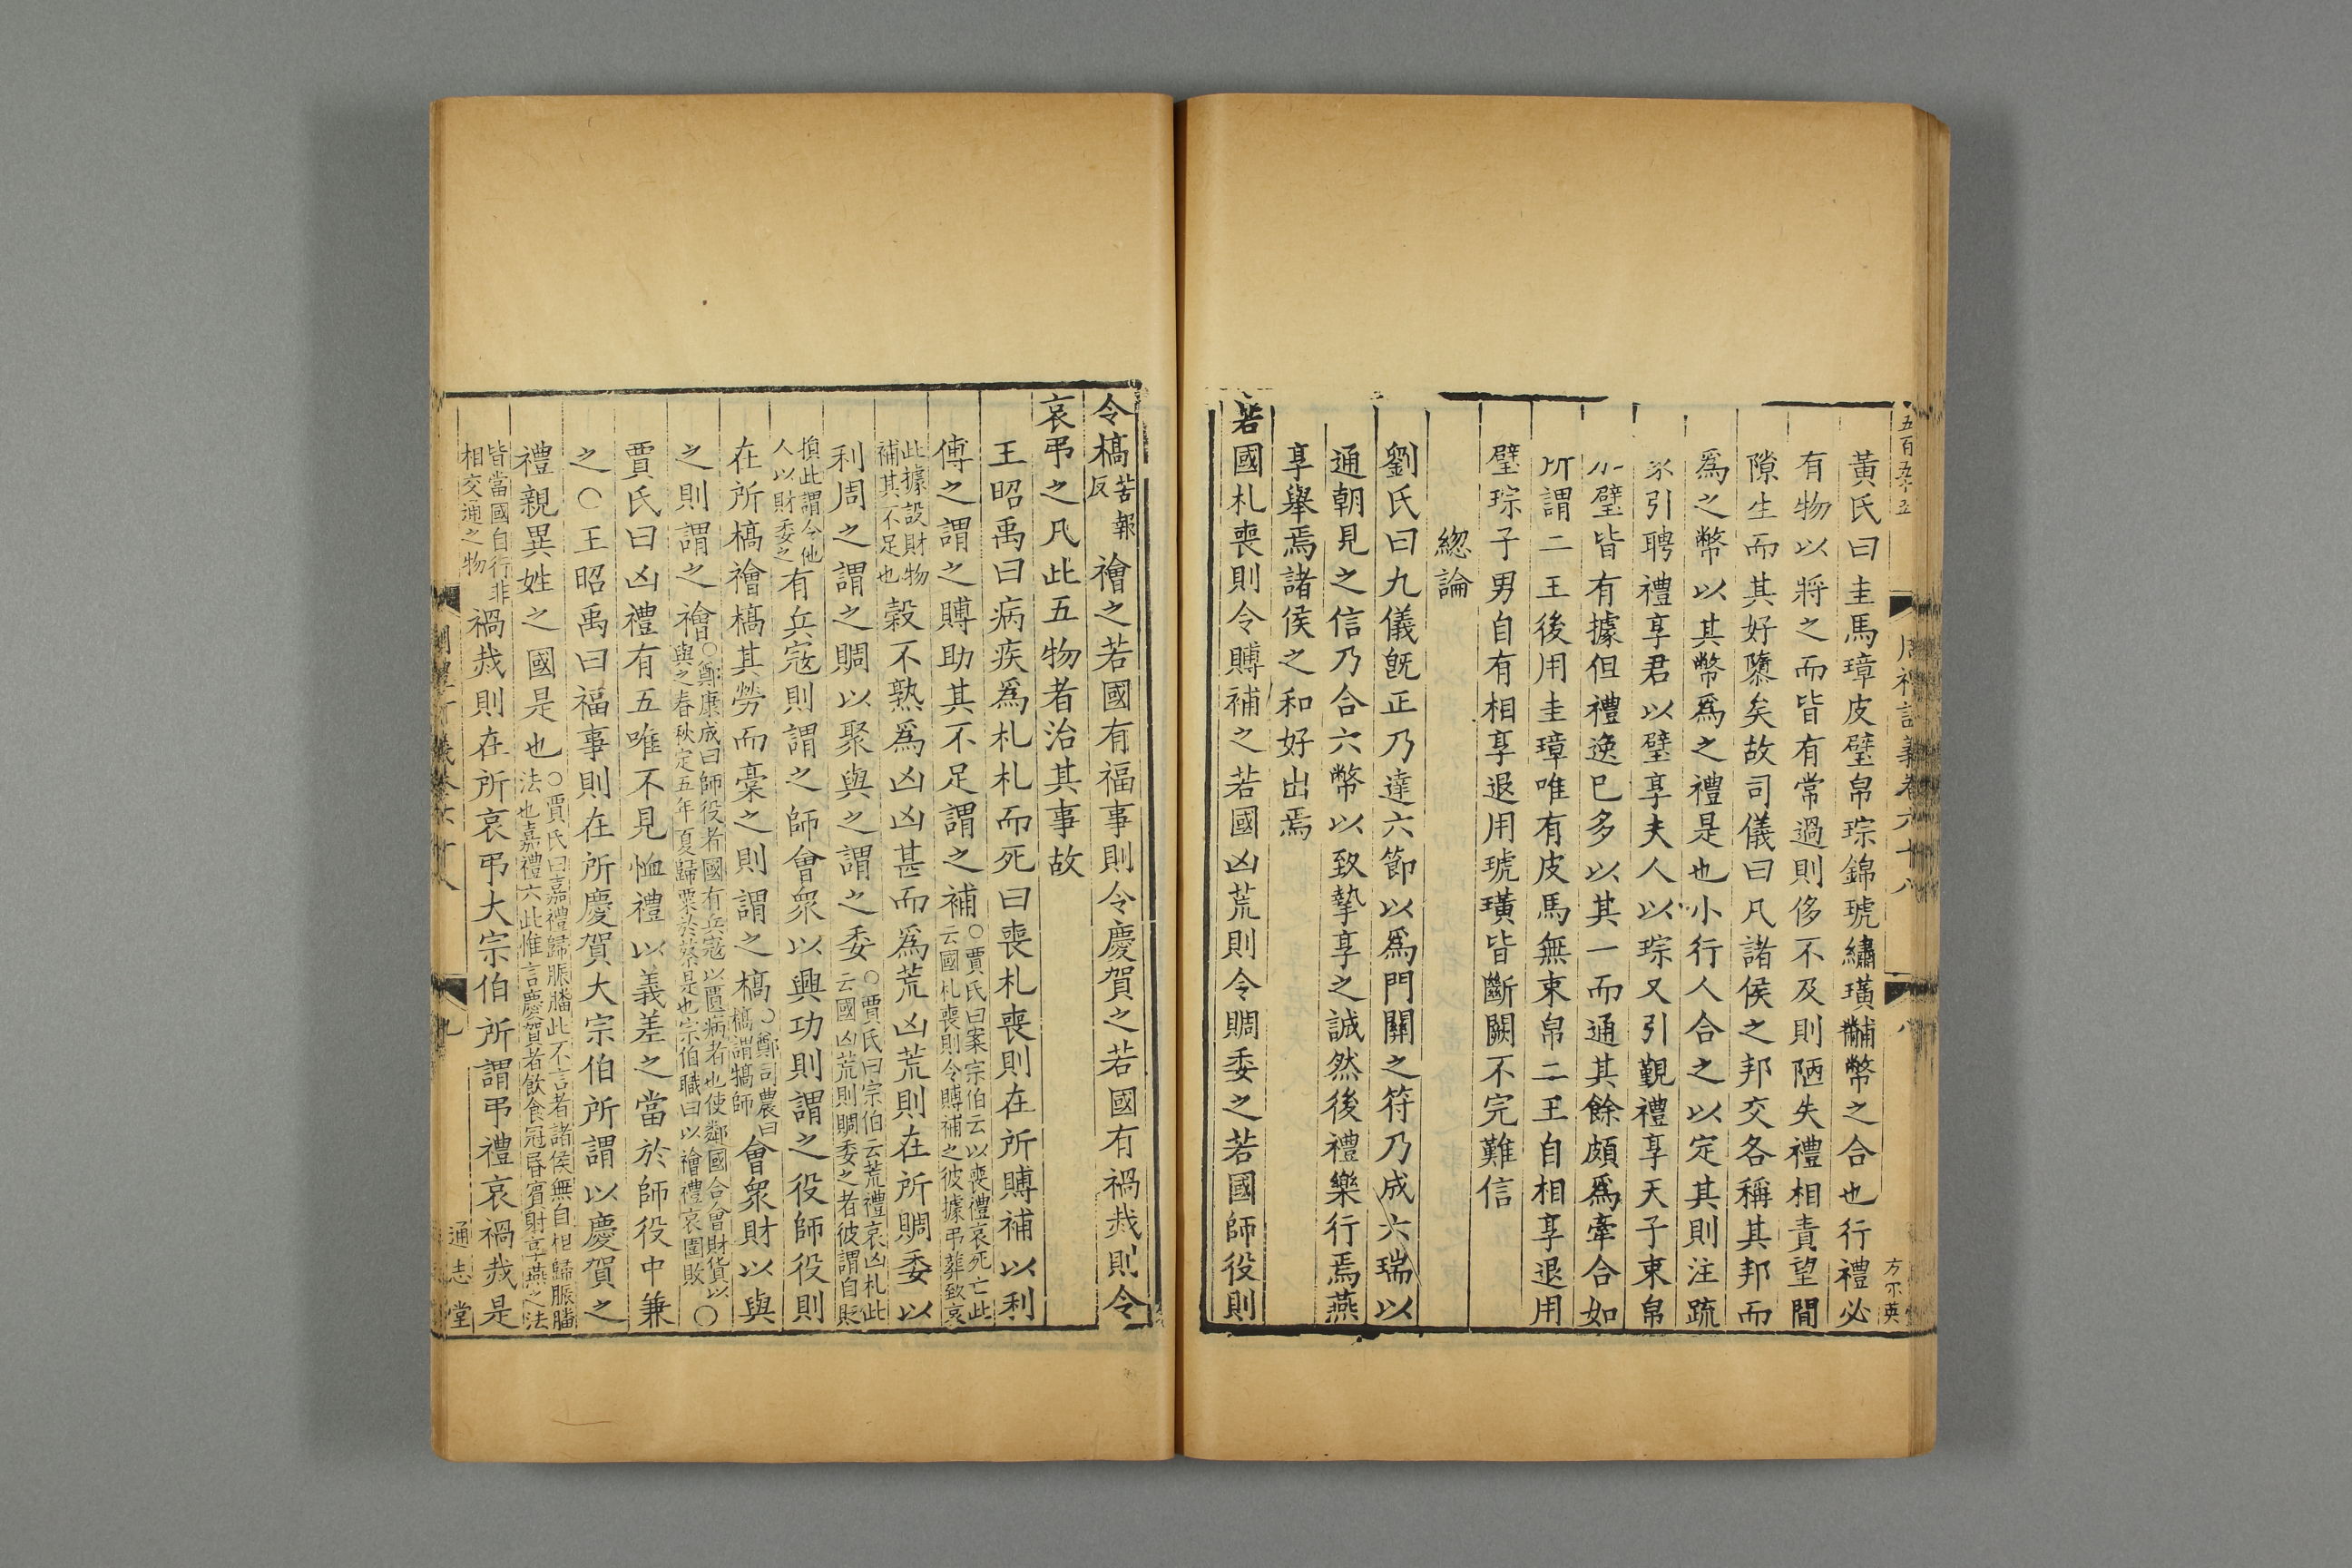 五百五十五
周禮訂義卷六十八
八
方不英
黃氏曰圭馬璋皮璧帛琮錦琥繡璜黼幣之合也行禮必
有物以將之而皆有常過則侈不及則陋失禮相責望間
隙生而其好隳矣故司儀曰凡諸侯之邦交各稱其邦而
爲之幣以其幣爲之禮是也小行人合之以定其則注疏
引聘禮享君以璧享夫人以琮又引覲禮享天子束帛
璧皆有據但禮逸巳多以其一而通其餘頗爲牽合如
所謂二王後用圭璋唯有皮馬無束帛二王自相享退用
璧琮子男自有相享退用琥璜皆斷闕不完難信
緫論
劉氏曰九儀旣正乃達六節以爲門關之符乃成六瑞以
通朝見之信乃合六幣以致摯享之誠然後禮樂行焉燕
享舉焉諸侯之和好出焉
若國札喪則令賻補之若國凶荒則令賙委之若國師役則
令槁苦報反禬之若國有福事則令慶賀之若國有禍烖則令
哀弔之凡此五物者治其事故
王昭禹曰病疾爲札札而死曰喪札喪則在所賻補以利
傅之謂之賻助其不足謂之補○賈氏曰案宗伯云以喪禮哀死亡此云國札喪則令賻補之彼據弔葬致哀
此據設財物補其不足也穀不熟爲凶凶甚而爲荒凶荒則在所賙委以
利周之謂之賙以聚與之謂之委○賈氏曰宗伯云荒禮哀凶札此云國凶荒則賙委之者彼謂自貶
損此謂令他人以財委之有兵寇則謂之師會衆以興功則謂之役師役則
在所槁禬槁其勞而槀之則謂之槁○鄭司農曰槁謂犒師會衆財以與
之則謂之禬○鄭康成曰師役者國有兵寇以匱病者也使鄰國合會財貨以與之春秋定五年夏歸粟於蔡是也宗伯職曰以禬禮哀圍敗○
賈氏曰凶禮有五唯不見恤禮以義差之當於師役中兼
之○王昭禹曰福事則在所慶賀大宗伯所謂以慶賀之
禮親異姓之國是也○賈氏曰嘉禮歸脤膰此不言者諸侯無自相歸脤膰法也嘉禮六此惟言慶賀者飲食冠昬賓射享燕之法
皆當國自行非相交通之物禍烖則在所哀弔大宗伯所謂弔禮哀禍烖是
周禮訂義卷六十八
九
通志堂